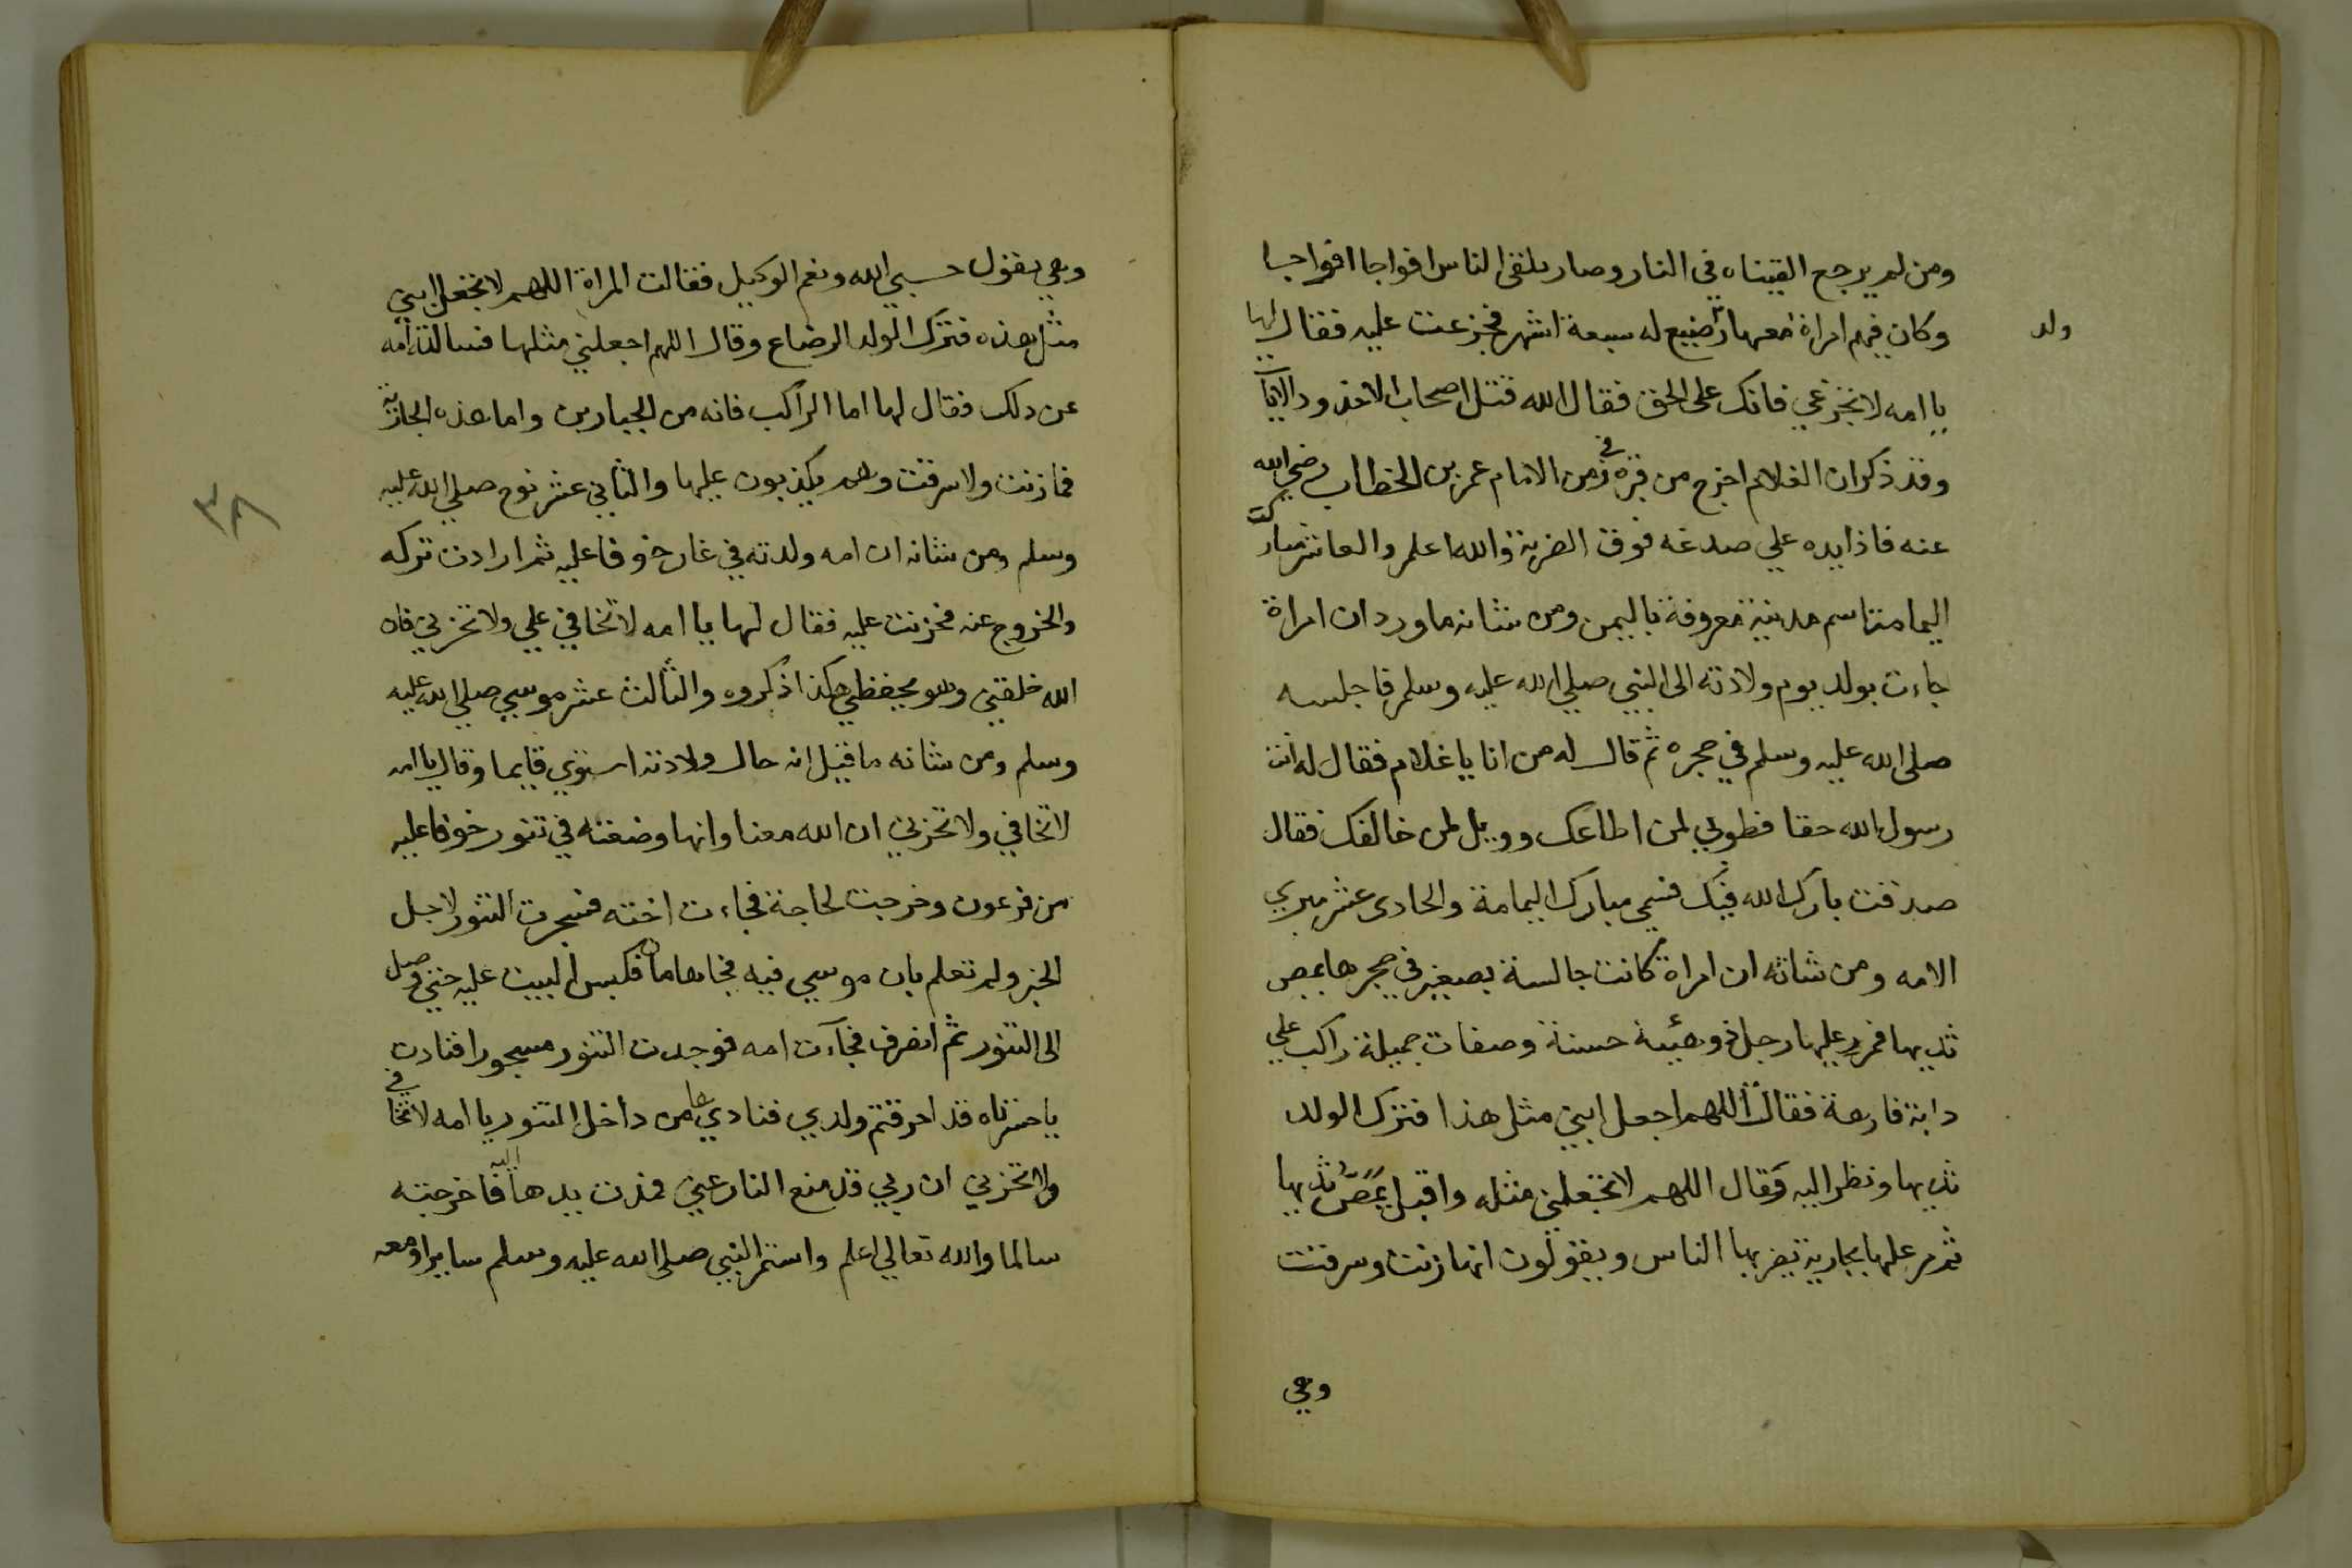 ومن لم يرجع القيناه في النار وصار يلقى الناس افواجا افواجا
ولد
وكان فيهم امراة معها رضيع له سبعة اشهر فجزعت عليه فقال لها
يا امه لا تجزعي فانك على الحق فقال الله قتل اصحاب الاخدود الايات
وقد ذكر ان الغلام اخرج من قبره في زمن الامام عمر بن الخطاب رضي الله
عنه فاذا يده علي صدغه فوق الضربة والله اعلم والعاشر مبارك
اليمامة اسم مدينة معروفة باليمن ومن شانه ما ورد ان امراة
جاءت بولد يوم ولادته الى النبي صلي الله عليه وسلم فاجلسه
صلى الله عليه وسلم في حجره ثم قال له من انا يا غلام فقال له انت
رسول الله حقا فطوبي لمن اطاعك وويل لمن خالفك فقال
صدقت بارك الله فيك فسمي مبارك اليمامة والحادى عشر مبري
الامه ومن شانه ان امراة كانت جالسة بصغير في حجرها يمص
ثديها فمر عليها رجل ذو هيئة حسنة وصفات جميلة راكب علي
دابة فارهة فقالت اللهم اجعل ابني مثل هذا فترك الولد
ثديها ونظر اليه وقال اللهم لا تجعلني مثله واقبل يمص ثديها
ثم مر عليها بجارية يضربها الناس ويقولون انها زنت وسرقت
وهي
وهي يقول حسبي الله ونعم الوكيل فقالت المراة اللهم لا تجعل ابني
مثل هذه فترك الولد الرضاع وقال اللهم اجعلني مثلها فسالته امه
عن دلك فقال لها اما الراكب فانه من الجبارين واما هذه الجارية
فما زنت ولا سرقت وهم يكذبون عليها والثاني عشر نوح صلي الله عليه
وسلم ومن شانه ان امه ولدته في غار خوفا عليه ثم ارادت تركه
والخروج عنه فحزنت عليه فقال لها يا امه لا تخافي علي ولا تحزني فان
الله خلقني وهو يحفظني هكذا ذكروه والثالث عشر موسي صلي الله عليه
وسلم ومن شانه ما قيل انه حال ولادته استوي قايما وقال يا امه
لا تخافي ولا تحزني ان الله معنا وانها وضعته في تنور خوفا عليه
من فرعون وخرجت لحاجة فجاءت اخته فسجرت التنور لاجل
الخبز ولم تعلم بان موسي فيه فجا هامان فكبس البيت عليه حتي وصل
الى التنور ثم انصرف فجآءت امه فوجدت التنور مسجورا فنادت
يا حسرتاه قد احرقتم ولدي فناديها من داخل التنور يا امه لا تخافي
ولا تحزني ان ربي قد منع النار عني فمدت يدها اليه فاخرجته
سالما والله تعالي اعلم واستمر النبي صلى الله عليه وسلم سايرا ومعه
٣٨